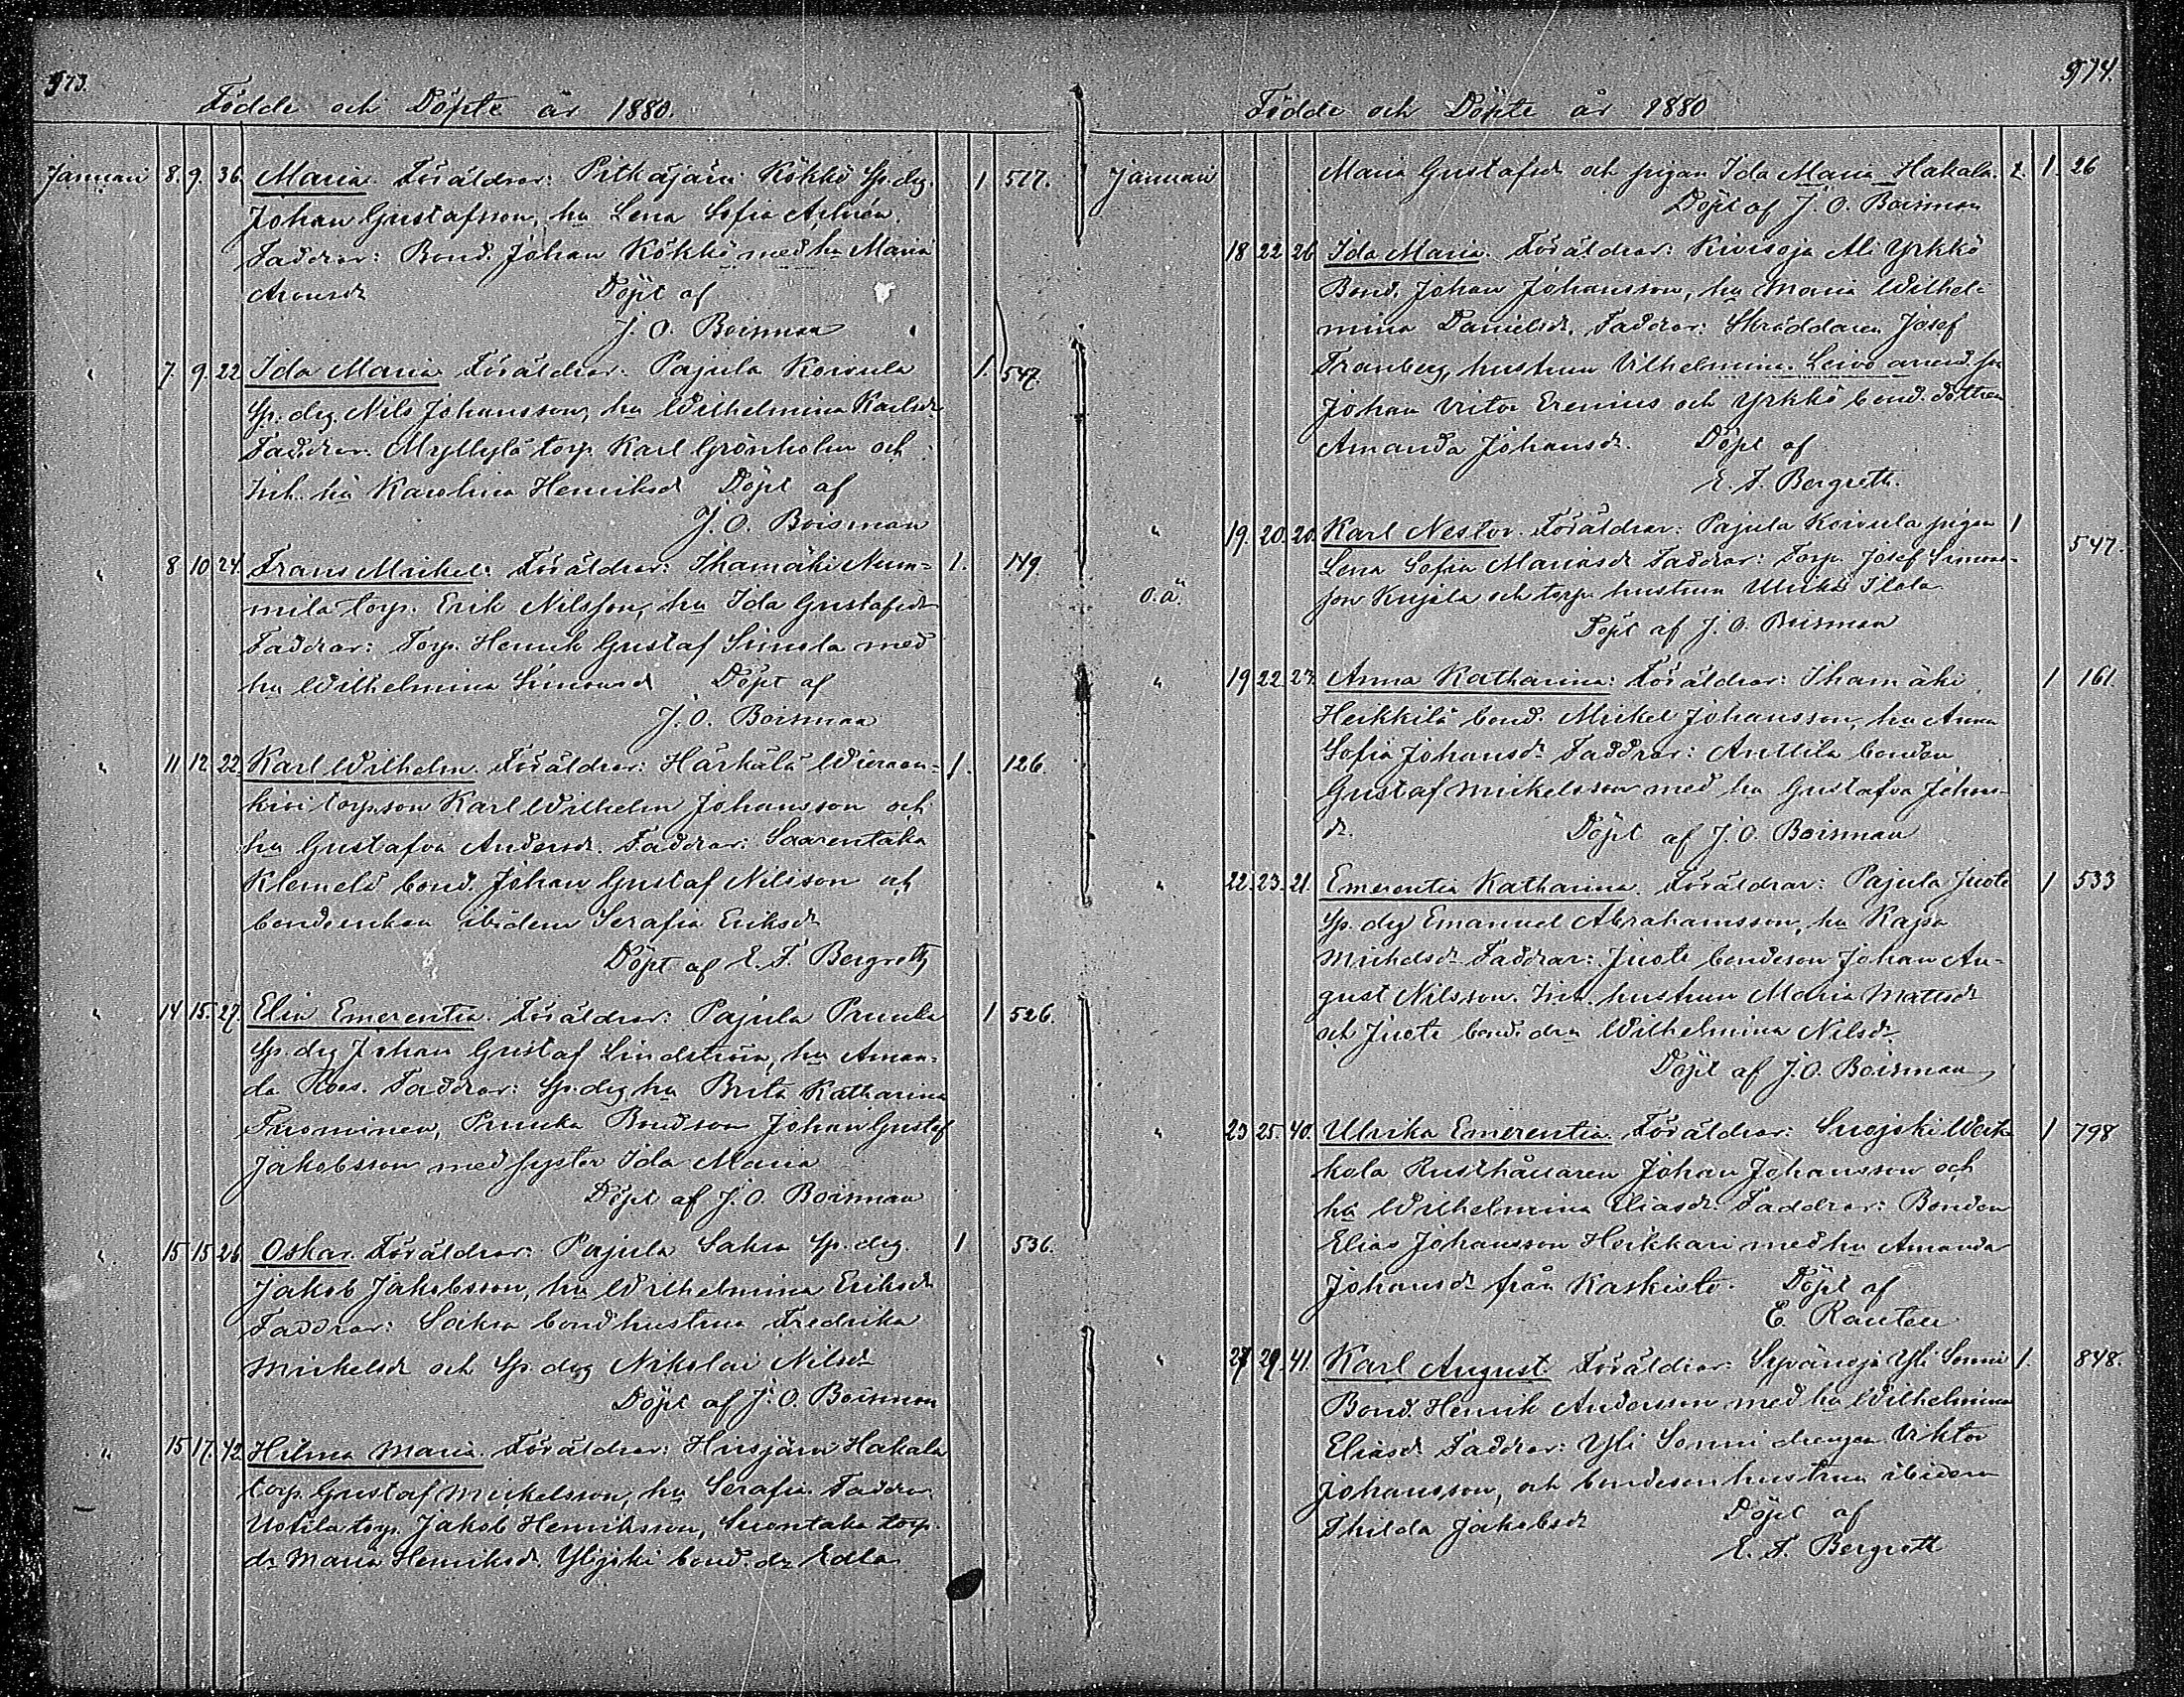 973.
Födde och Döpte år 1880.
Januari 8. 9. 36. Maria. Föräldrar: Pitkäjärvi Kökkö Sp. drg. 1 517.
Johan Gustafsson, hu Lena Sofia
Faddrar: Bond. Johan Kökkö med hu Maria
Döpt af
J. O. Boisman
" 7. 9. 22. Ida Maria Föräldrar: Pajula Koivula 1. 547.
Sp. drg. Nils Johansson, hu Wilhelmina Karlsdr
Faddrar: Myllylä torp. Karl Grönholm och
Inh. hu Karolina Henriksdr Döpt af
J. O. Boisman
" 8 10 24. Frans Mickel: Föräldrar: Ihamäki Num= 1. 149.
mila torp. Erik Nilsson, hu Ida Gustafsdr
Faddrar: Torp. Henrik Gustaf Simola med
hu Wilhelmina Simonsd Döpt af
J. O. Boisman
" 11 12 22. Karl Wilhelm. Föräldrar: Härkälä Wieraan= 1. 126.
kivi torp.son Karl Wilhelm Johansson och
hu Gustafva Andersdr. Faddrar: Saarentaka
Klemelä bond. Johan Gustaf Nilsson och
bondeenkan ibidem Serafia Eriksdr
Döpt af E. F. Bergroth
" 14 15. 27. Elin Emerentia. Föräldrar: Pajula Prunka 1 526.
Sp. drg Johan Gustaf Lindström, hu Aman=
da Roos. Faddrar: Sp. drg hu Brita Katharina
Tuominen, Prunka Bondson Johan Gustaf
Jakobsson med syster Ida Maria
Döpt af J. O. Boisman
" 15 15 26. Oskar. Föräldrar: Pajula Sakra Sp. drg. 1 536.
Jakob Jakobsson, hu Wilhelmina Eriksdr
Faddrar: Sakra bondhustrun Fredrika
Mickelsdr och Sp. drg Nikolai Nilsd
Döpt af J. O. Boisman
" 15 17. 42. Hilma Maria. Föräldrar: Hirsjärvi Hakala
torp. Gustaf Mickelsson, hu Serafia. Faddrar:
Uotila torp. Jakob Henriksson, Suontaka torp.
dr Maria Henriksdr. Ylijoki bond. dr Edla
974.
Födde och Döpte år 1880
Januari Maria Gustafsdr och pigan Ida Maria Hakala. 1. 1. 26
Döpt af J. O. Boisman
18 22 26 Ida Maria. Föräldrar: Kivisoja Ali Yrkkö
Bond. Johan Johansson, hu Maria Wilhel=
mina Danielsdr. Faddrar: Skräddaren Josef
Tranberg, hustrun Vilhelmina. Leivo arrend. son
Johan Viktor Erenius och Yrkkö bond. dottren
Amanda Johansdr. Döpt af
E. F. Bergroth.
" 19. 20. 20. Karl Nestor. Föräldrar: Pajula Koivula pigan 1 547.
Lena Sofia Mariasdr Faddrar: Torp. Josef Simons=
o. ä. son Kujala och torp. hustrun Ulrika Ilola
Döpt af J. O. Boisman
" 19 22. 23. Anna Katharina: Föräldrar: Ihamäki 1 161.
Heikkilä bond. Mickel Johansson, hu Anna
Sofia Johansdr Faddrar: Anttila bonden
Gustaf Mickelsson med hu Gustafva Johans=
dr. Döpt af J. O. Boisman
" 22. 23. 21. Emerentia Katharina. Föräldrar: Pajula Juote 1 533
Sp. drg Emanuel Abrahamsson, hu Kajsa
Mickelsdr Faddrar: Juote bondeson Johan Au=
gust Nilsson. Inh. hustrun Maria Mattsdr
och Juote bond. drn Wilhelmina Nilsdr.
Döpt af J. O. Boisman
" 23 25. 40. Ulrika Emerentia. Föräldrar: Suojoki Werk 1 798
kola Rusthållaren Johan Johansson och
hu Wilhelmina Eliasdr. Faddrar: Bonden
Elias Johansson Heikkari med hu Amanda
Johansdr från Kaskisto. Döpt af
E Rautell
" 27 29. 41. Karl August Föräldrar: Syvänoja Yli Sonni 1. 848.
Bond. Henrik Andersson med hu Wilhelmina
Eliasd. Faddrar: Yli Sonni drengen Viktor
Johansson, och bondeson hustrun ibidem
Thilda Jakobsdr Döpt af
E. F. Bergroth